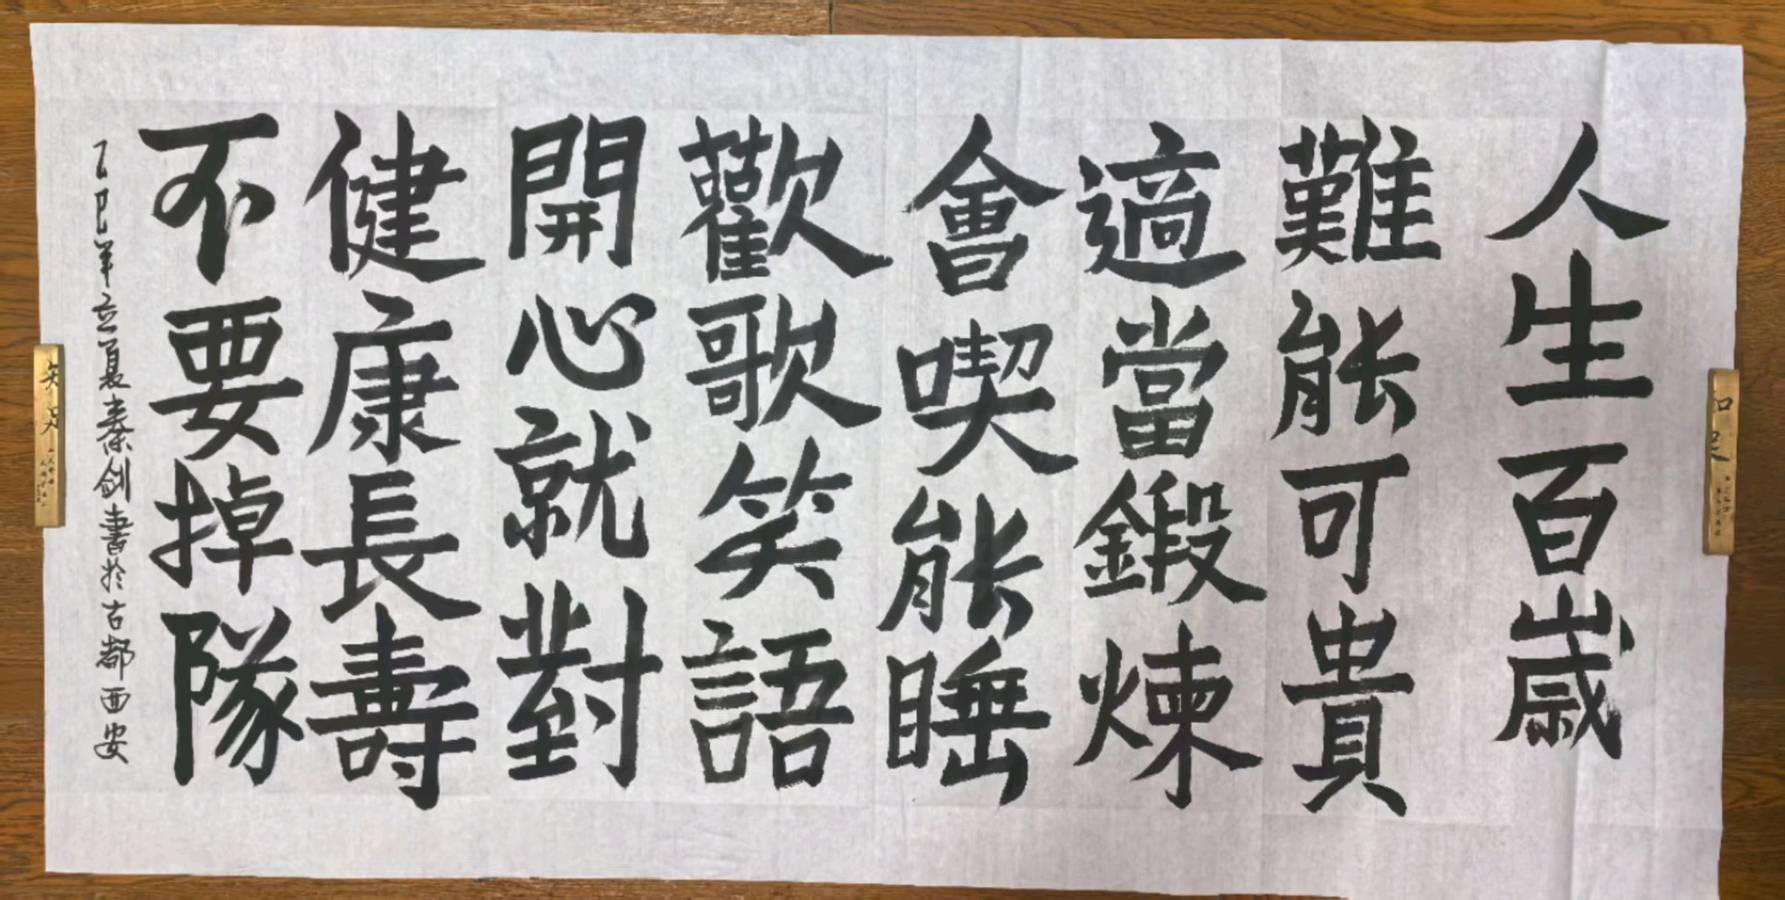 人生百歲
難能可貴
適當鍛煉
會喫能睡
歡歌笑語
開心就對
健康長壽
不要掉隊
乙巳年立夏秦劍書於古都西安
知足